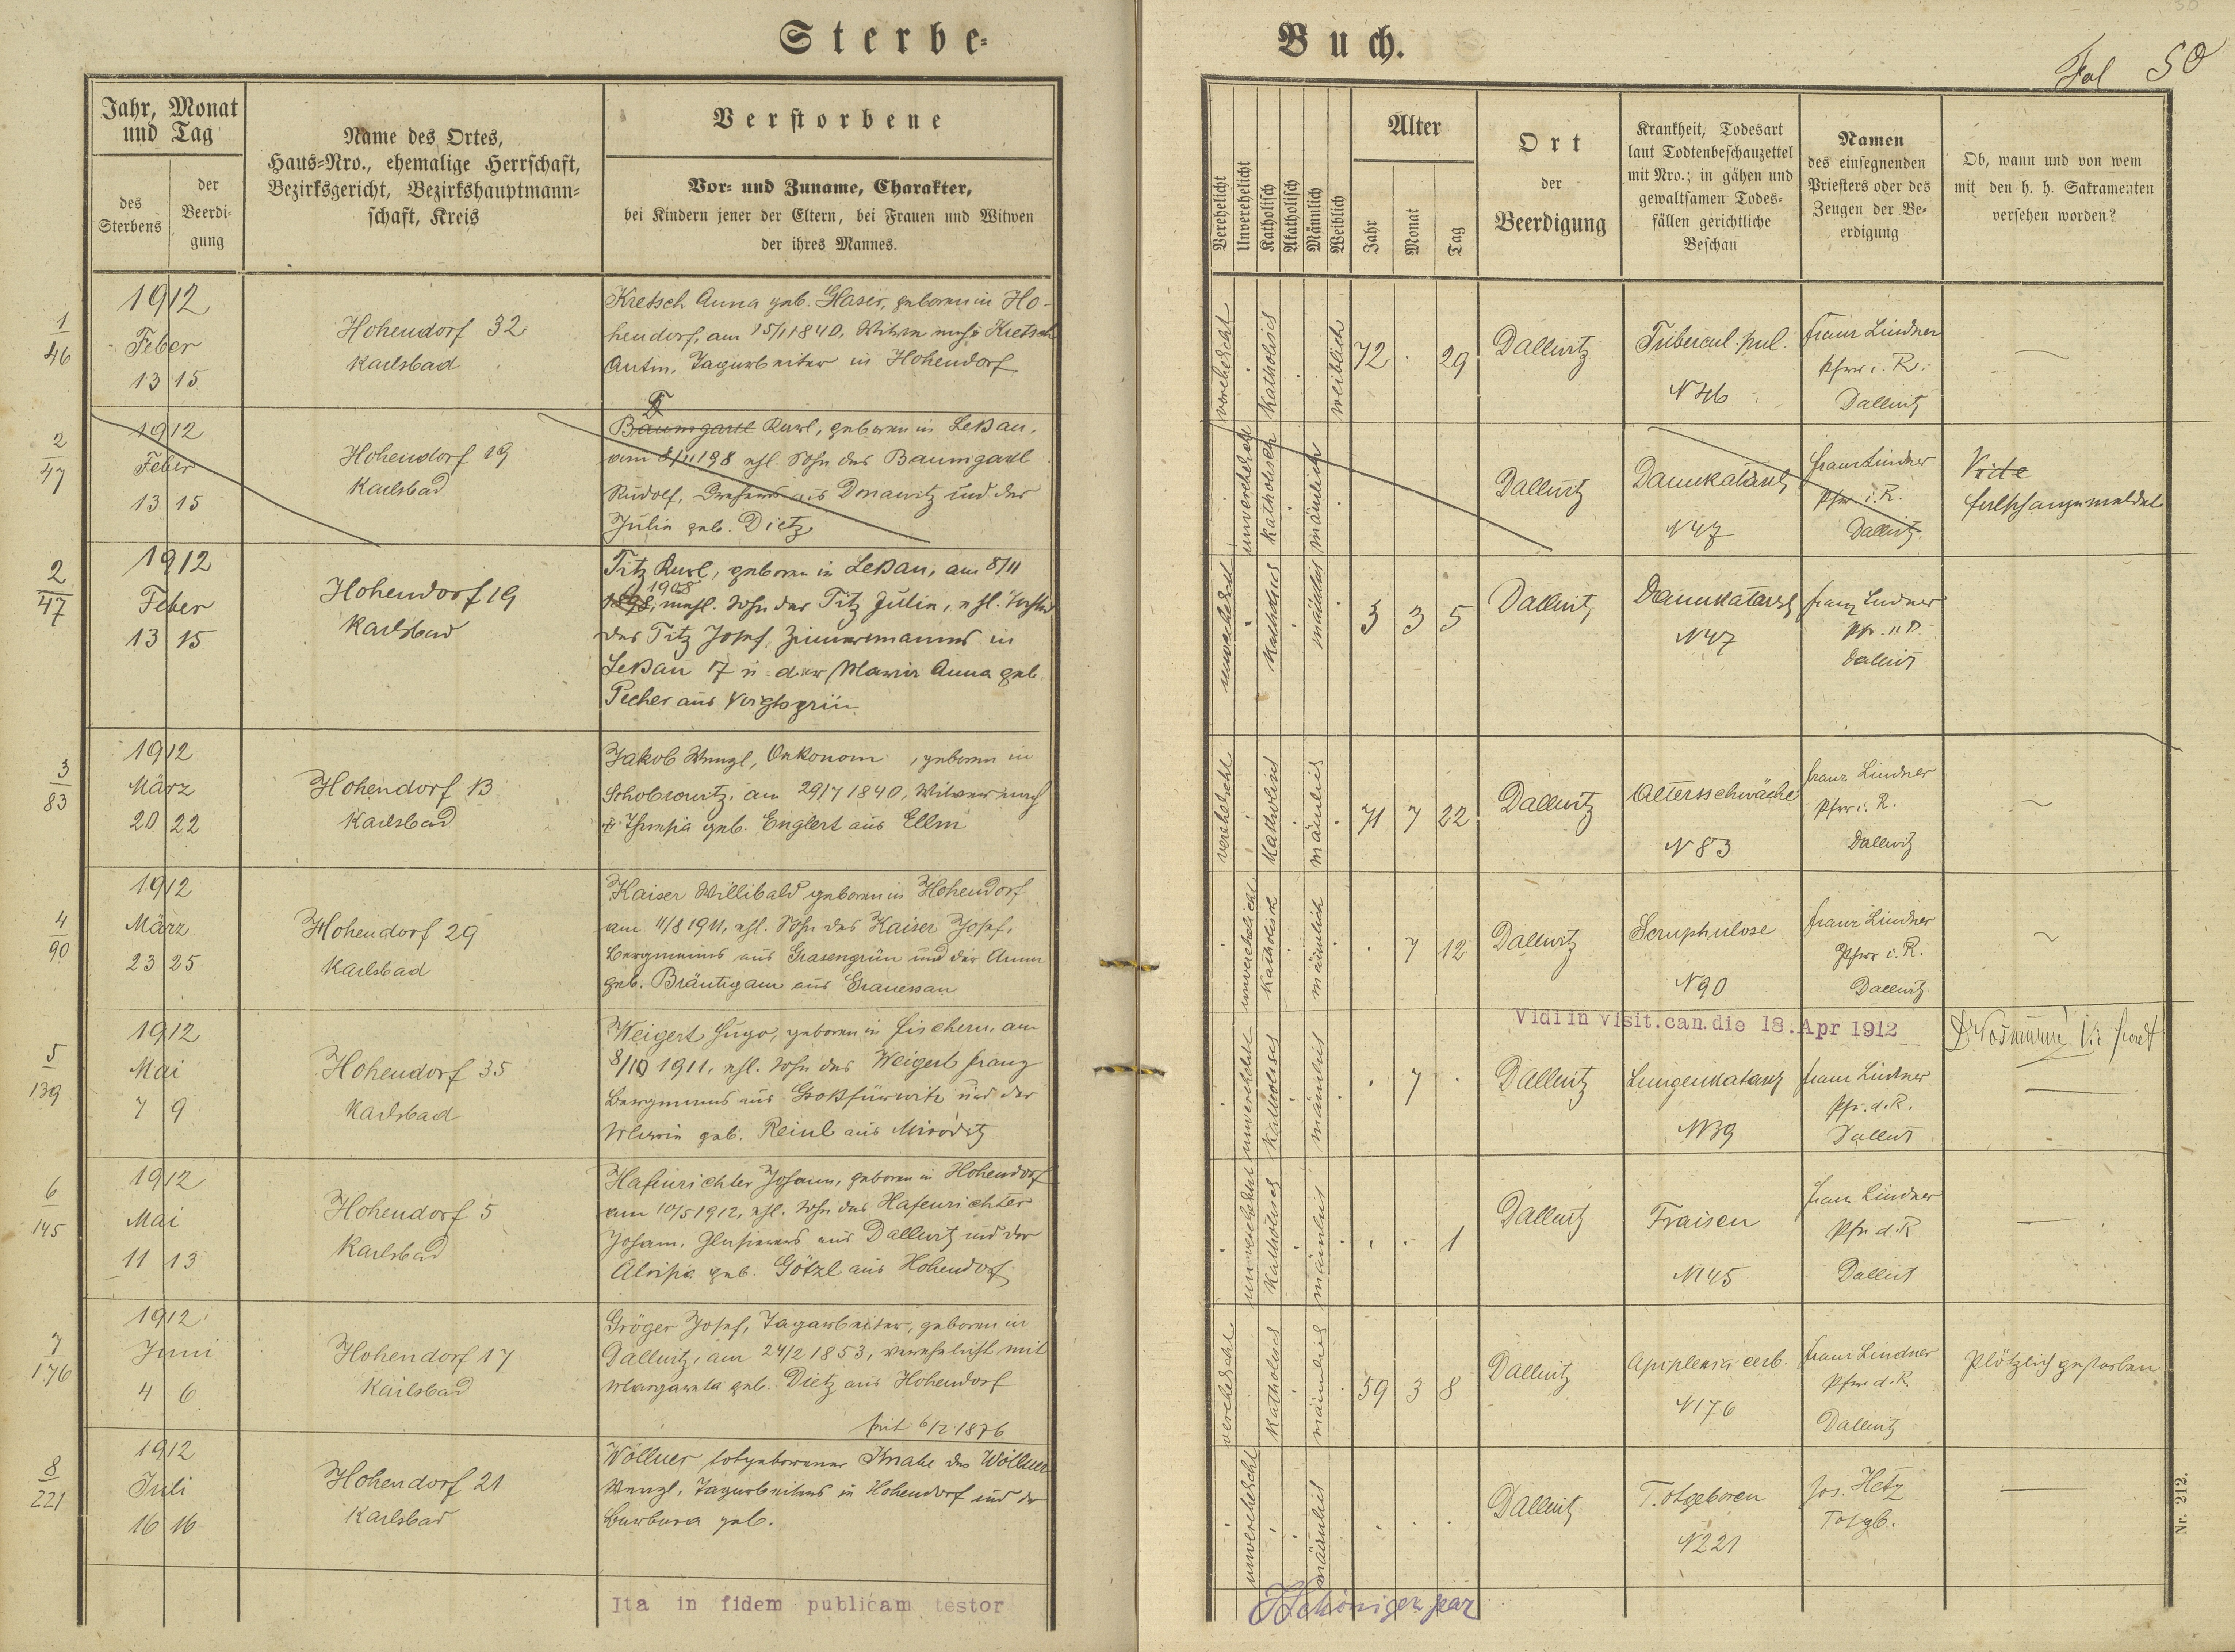 Sterbe-
Buch.
Fol 50
Jahr, Monat
und Tag
des
Sterbens
der
Beerdi-
gung
Name des Ortes,
Haus-Nro., ehemalige Herrschaft,
Bezirksgericht, Bezirkshauptmann-
schaft, Kreis
Verstorbene
Vor- und Zuname, Charakter,
bei Kindern jener der Eltern, bei Frauen und Witwen
der ihres Mannes.
Verehelicht
Unverehelicht
Katholisch
Akatholisch
Männlich
Weiblich
Alter
Jahr
Monat
Tag
Ort
der
Beerdigung
Krankheit, Todesart
laut Todtenbeschauzettel
mit Nro.; in gähen und
gewaltsamen Todes-
fällen gerichtliche
Beschau
Namen
des einsegnenden
Priesters oder des
Zeugen der Be-
erdigung
Ob, wann und von wem
mit den h. h. Sakramenten
versehen worden?
1
46
1912
Feber
13 15
Hohendorf 32
Karlsbad
Kretsch Anna geb. Glaser, geboren in Ho-
hendorf, am 15/1 1840, Witwe nach Kretsch
Anton, Tagarbeiter in Hohendorf
verehelicht
katholisch
weiblich
72 . 29
Dallwitz
Tubercul. pul.
N 46
Franz Lindner
Pfrr i. R.
Dallwitz
2
47
1912
Feber
13 15
Hohendorf 19
Karlsbad
Baumgartl Karl, geboren in Leßau,
am 8/11 198 ehl. Sohn des Baumgartl
Rudolf, Drehers aus Donawitz und der
Julie geb. Dietz
unverehelicht
katholisch
männlich
Dallwitz
Darmkatarrh
N 47
Franz Lindner
Pfrr i. R.
Dallwitz
falsch angemeldet
2
47
1912
Feber
13 15
Hohendorf 19
Karlsbad
Titz Karl, geboren in Leßau, am 8/11
1908
1898, unehl. Sohn der Titz Julie, ehl. Tochter
des Titz Josef, Zimmermannes in
Leßau 17 u. der Maria Anna geb.
Pecher aus Voigtsgrün
unverehelicht
katholisch
männlich
3 3 5
Dallwitz
Darmkatarrh
N 47
Franz Lindner
Dallwitz
3
83
1912
März
20 22
Hohendorf 13
Karlsbad
Jakob Wenzl, Oekonom, geboren in
Schobrowitz, am 29/7 1840, Witwer nach
geb. Englert aus Ellm
verehelicht
katholisch
männlich
71 7 22
Dallwitz
Altersschwäche
N 83
Franz Lindner
Pfrr i. R.
Dallwitz
4
90
1912
März
23 25
Hohendorf 29
Karlsbad
Kaiser Willibald geboren in Hohendorf
am 11/8 1911, ehl. Sohn des Kaiser Josef,
Bergmanns aus Grasengrün und der Anna
geb. Bräutigam aus Granessau
unverehelicht
katholisch
männlich
. 7 12
Dallwitz
Scruphulose
N 90
Franz Lindner
Pfrr i. R.
Dallwitz
Vidi in visit. can. die 18. Apr 1912
5
139
1912
Mai
7 9
Hohendorf 35
Karlsbad
Weigert Hugo, geboren in Fischern, am
8/10 1911, ehl. Sohn des Weigert Franz
Bergmanns aus Großfürwitz und der
Maria geb. Reinl aus Miroditz
unverehelicht
katholisch
männlich
. 7 .
Dallwitz
Lungenkatarrh
N139
Franz Lindner
Pfr. d. R.
Dallwitz
6
145
1912
Mai
11 13
Hohendorf 5
Karlsbad
Hafenrichter Johann, geboren in Hohendorf
am 10/5 1912, ehl. Sohn des Hafenrichter
Johann, Glasierers aus Dallwitz und der
Aloisia geb. Götzl aus Hohendorf
unverehelicht
katholisch
männlich
. . 1
Dallwitz
Fraisen
N145
Franz Lindner
Pfr d. R
Dallwitz
7
176
1912
Juni
4 6
Hohendorf 17
Karlsbad
Gröger Josef, Tagarbeiter, geboren in
Dallwitz, am 24/2 1853, verehelicht mit
Margareta geb. Dietz aus Hohendorf
seit 6/2 1876
verehelicht
katholisch
männlich
59 3 8
Dallwitz
Apoplexia cerb.
N176
Franz Lindner
Pfrr d. R.
Dallwitz
Plötzlich gestorben
8
221
1912
Juli
16 16
Hohendorf 21
Karlsbad
Wöllner totgeborener Knabe des Wöllner
Wenzl, Tagarbeiters in Hohendorf und der
Barbara geb.
unverehelicht
männlich
Dallwitz
Totgeboren
N221
Jos. Hetz
Totgb.
Ita in fidem publicam testor
Nr. 212.